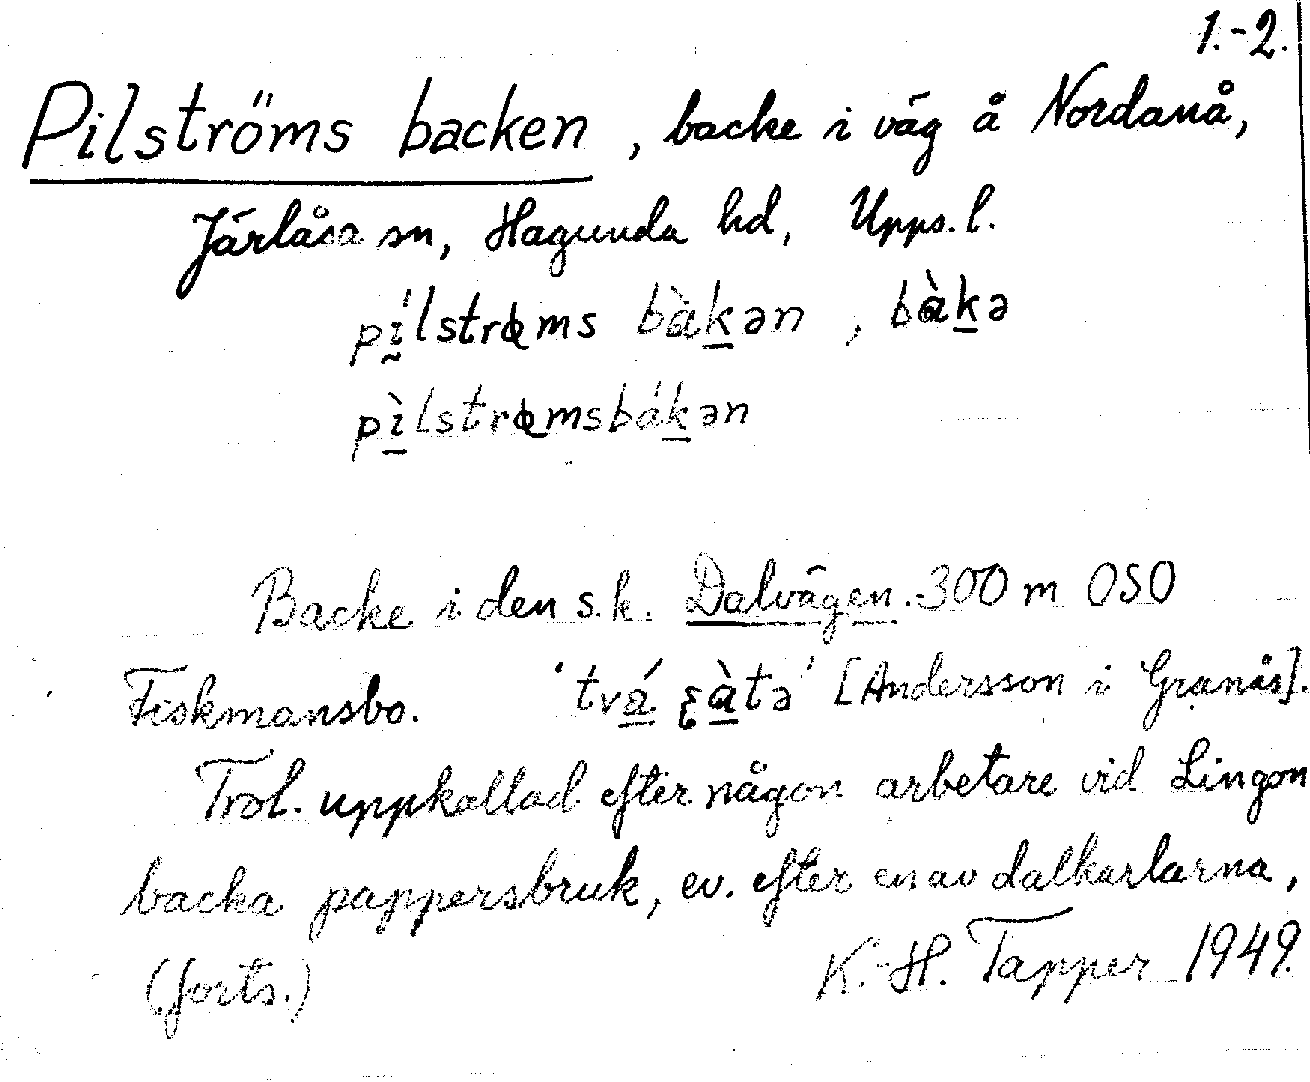 1.-2.
Pilströms backen, backe i väg å Nordanå,
Järlåsa sn, Hagunda hd, Upps. l.
pí̱lstrœms bàḵən, bàḵə
pì̱lstrœmsbáḵən
Backe i den s.k. Dalvägen. 300 m OSO
Fiskmansbo. 'tvá̱ ʂà̱tə' [Andersson i Granås].
Trol. uppkallad efter någon arbetare vid Lingon
backa pappersbruk, ev. efter en av dalkarlarna,
(forts.) K.-H. Tapper 1949.